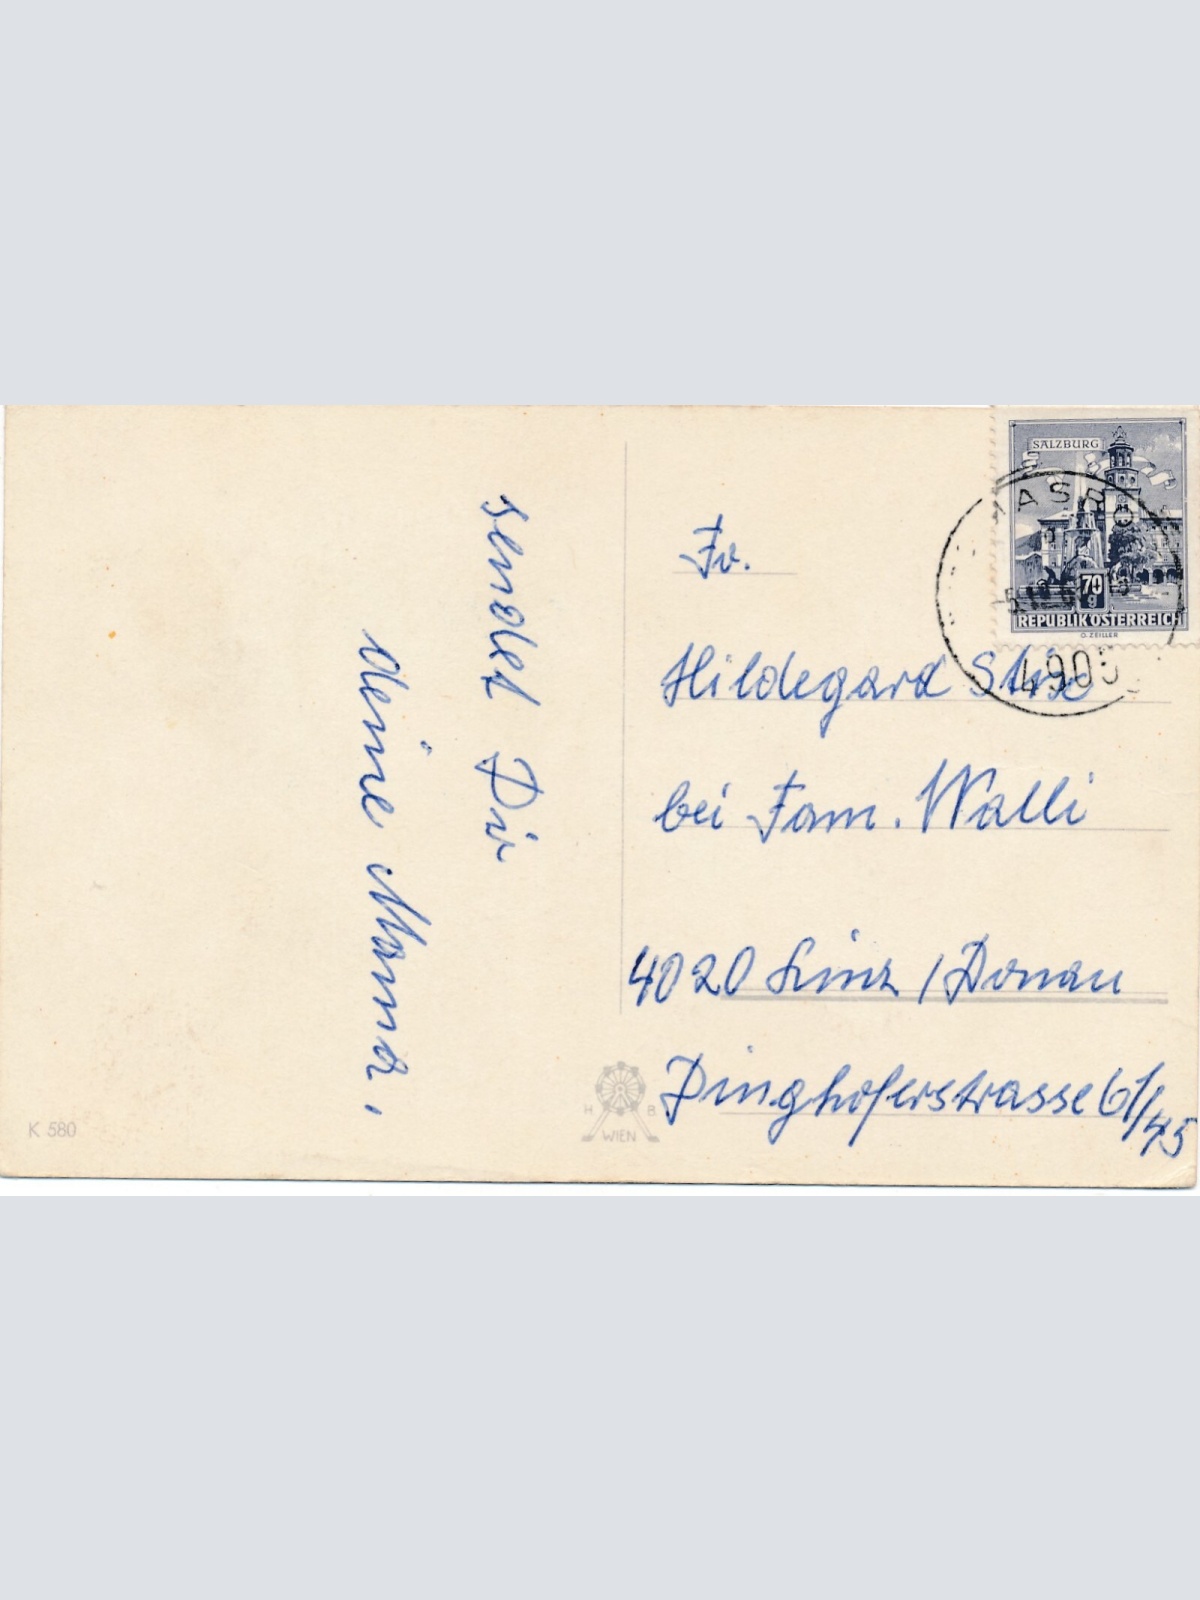 sendet Dir
deine Mama,
Fr.
Hildegard
bei Fam. Walli
4020 Linz / Donau
Dinghoferstrasse 61/45
SALZBURG
70
g
REPUBLIK ÖSTERREICH
O. ZEILLER
H B
WIEN
K 580